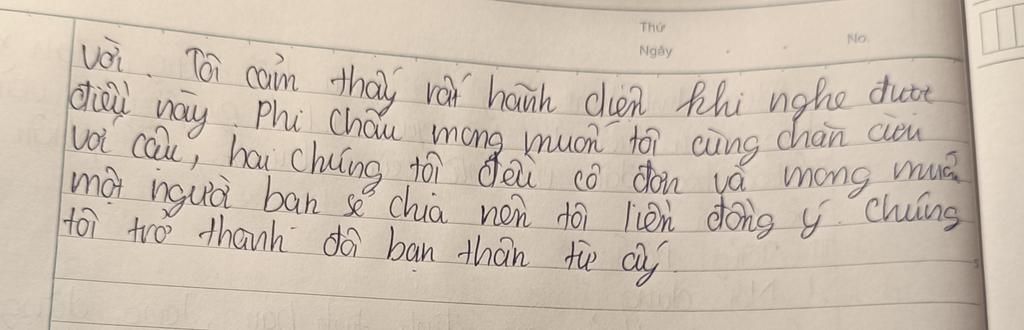 Thứ
Ngày
No.
vời. Tôi cảm thấy rất hãnh diện khi nghe được
điều này. Phi Châu mong muốn tôi cùng chăn cừu
với cậu, hai chúng tôi đều cô đơn và mong muốn
một người bạn sẻ chia nên tôi liền đồng ý. Chúng
tôi trở thành đôi bạn thân từ ấy.